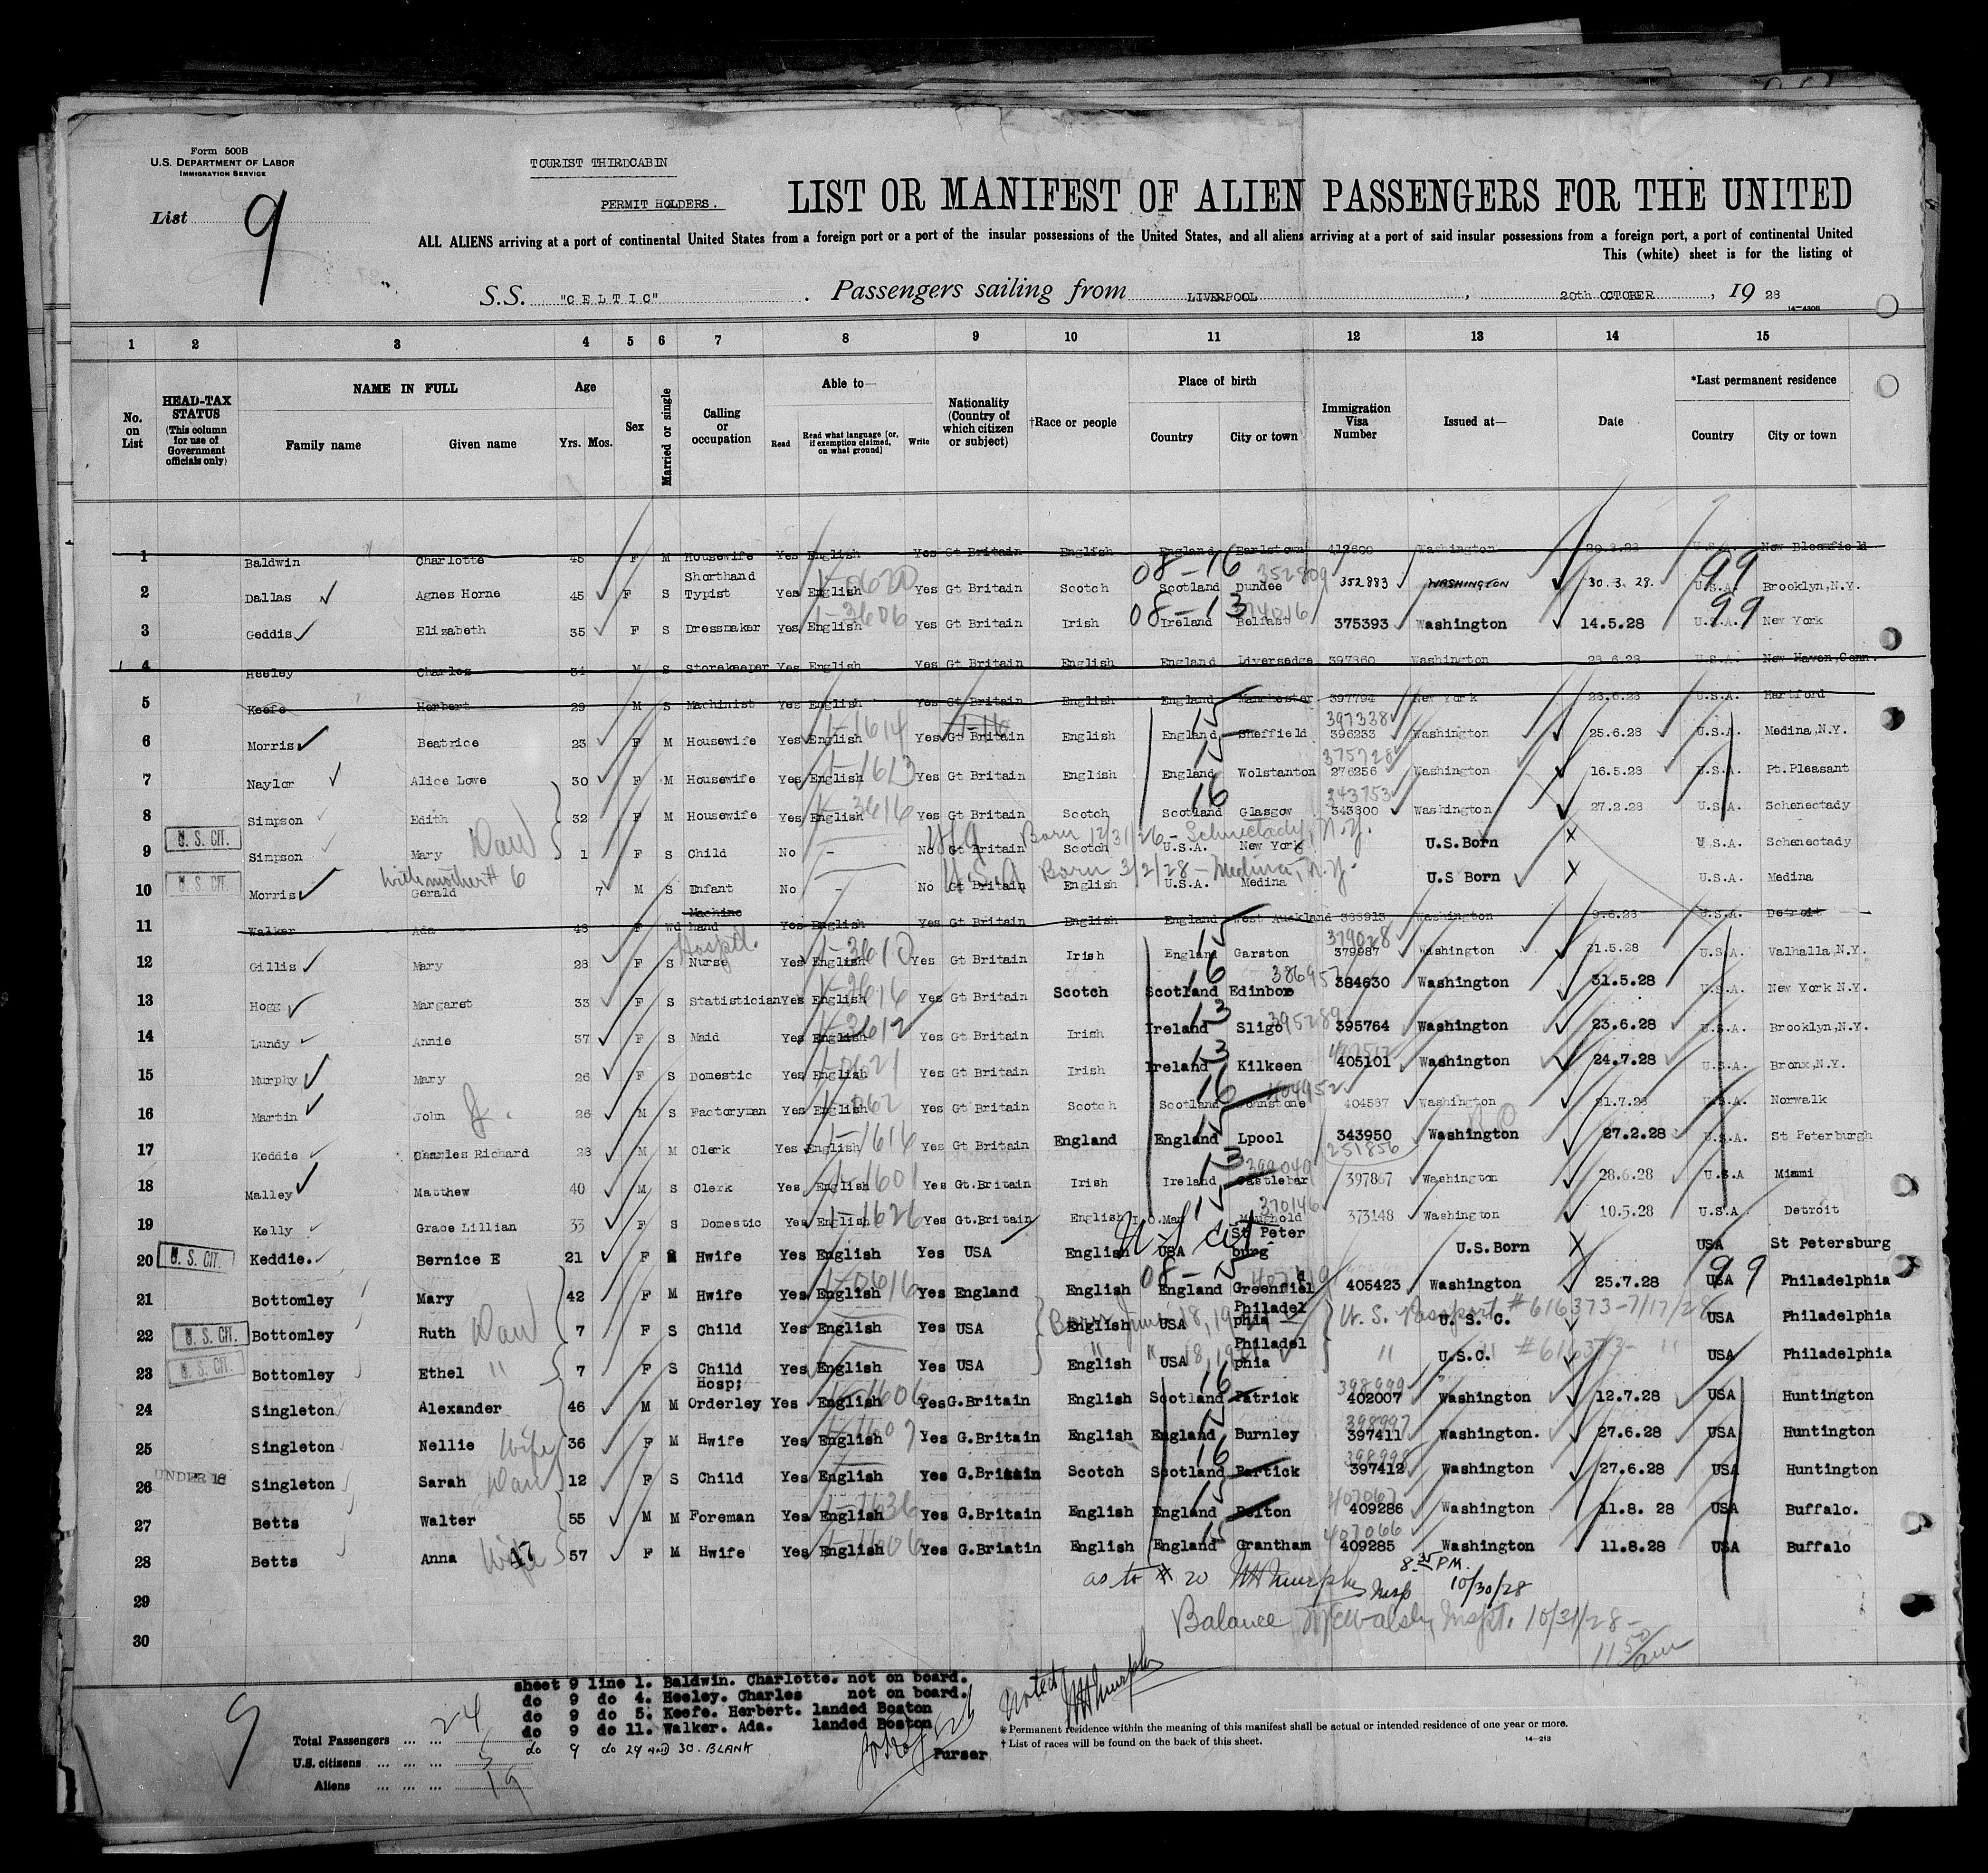 Form 500B
U.S. DEPARTMENT OF LABOR
IMMIGRATION SERVICE
TOURIST THIRDCABIN
PERMIT HOLDERS.
List 9
LIST OR MANIFEST OF ALIEN PASSENGERS FOR THE UNITED
ALL ALIENS arriving at a port of continental United States from a foreign port or a port of the insular possessions of the United States, and all aliens arriving at a port of said insular possessions from a foreign port, a port of continental United
This (white) sheet is for the listing of
S.S. "CELTIC" . Passengers sailing from LIVERPOOL , 20th OCTOBER , 19 28
14-4306
1 2 3 4 5 6 7 8 9 10 11 12 13 14 15
No. on List
HEAD-TAX STATUS (This column for use of Government officials only)
NAME IN FULL
Family name Given name
Age
Yrs. Mos.
Sex
Married or single
Calling or occupation
Able to—
Read Read what language [or, if exemption claimed, on what ground] Write
Nationality (Country of which citizen or subject)
†Race or people
Place of birth
Country City or town
Immigration Visa Number
Issued at—
Date
*Last permanent residence
Country City or town
1 Baldwin Charlotte 45 F M Housewife Yes English Yes Gt Britain English England Earlstown 412600 Washington 20.8.28 U.S.A. New Bloomfield
08-16 352809 99
2 Dallas Agnes Horne 45 F S Shorthand Typist Yes English 1-0620 Yes Gt Britain Scotch Scotland Dundee 352883 WASHINGTON 30.3.28. U.S.A. Brooklyn,N.Y.
08-13 99
3 Geddis Elizabeth 35 F S Dressmaker Yes English 1-3606 Yes Gt Britain Irish Ireland Belfast 375393 Washington 14.5.28 U.S.A. New York
4 Heeley Charles 34 M S Storekeeper Yes English Yes Gt Britain English England Liversedge 397860 Washington 28.6.28 U.S.A. New Haven,Conn.
5 Keefe Herbert 29 M S Machinist Yes English Yes Gt Britain English England Manchester 397794 New York 28.6.28 U.S.A. Hartford
15 397338
6 Morris Beatrice 23 F M Housewife Yes English 1-1614 Yes Gt Britain English England Sheffield 396233 Washington 25.6.28 U.S.A. Medina,N.Y.
15 375728
7 Naylor Alice Lowe 30 F M Housewife Yes English 1-1613 Yes Gt Britain English England Wolstanton 276256 Washington 16.5.28 U.S.A. Pt.Pleasant
16 343753
8 Simpson Edith 32 F M Housewife Yes English 1-3616 Yes Gt Britain Scotch Scotland Glasgow 343800 Washington 27.2.28 U.S.A. Schenectady
U. S. CIT. Dau Born 12/31/26 - Schnectady, N.Y.
9 Simpson Mary 1 F S Child No - No Gt Britain Scotch U.S.A. New York U.S.Born X U.S.A. Schenectady
U. S. CIT. With mother # 6 U.S.A Born 3/2/28 - Medina, N.Y.
10 Morris Gerald 7 M S Infant No - No Gt Britain English U.S.A. Medina U.S Born X U.S.A. Medina
11 Walker Ada 48 F Wd Machine hand Yes English Yes Gt Britain English England West Auckland 388913 Washington 9.6.28 U.S.A. Detroit
Hospt. 15 379028
12 Gillis Mary 28 F S Nurse Yes English 1-3610 Yes Gt Britain Irish England Garston 379987 Washington 21.5.28 U.S.A. Valhalla,N.Y.
16 386957
13 Hogg Margaret 33 F S Statistician Yes English 1-2616 Yes Gt Britain Scotch Scotland Edinboro 384630 Washington 31.5.28 U.S.A. New York N.Y.
13 395289
14 Lundy Annie 37 F S Maid Yes English 1-3612 Yes Gt Britain Irish Ireland Sligo 395764 Washington 23.6.28 U.S.A. Brooklyn,N.Y.
13
15 Murphy Mary 26 F S Domestic Yes English 1-0621 Yes Gt Britain Irish Ireland Kilkeen 405101 Washington 24.7.28 U.S.A. Bronx,N.Y.
16 404952
16 Martin John J. 26 M S Factoryman Yes English Yes Gt Britain Scotch Scotland Johnstone 404587 Washington 21.7.28 U.S.A. Norwalk
15
17 Keddie Charles Richard 28 M M Clerk Yes English 1-1616 Yes Gt Britain England England Lpool 343950 Washington 27.2.28 U.S.A. St Peterburgh
251856
13 399049
18 Malley Matthew 40 M S Clerk Yes English 1-1601 Yes Gt.Britain Irish Ireland Castlebar 397867 Washington 28.6.28 U.S.A Miami
15 370146
19 Kelly Grace Lillian 33 F S Domestic Yes English 1-1626 Yes Gt.Britain English I.O.Man Maughold 373148 Washington 10.5.28 U.S.A Detroit
U. S. CIT. U.S. Cit
20 Keddie. Bernice E 21 F Hwife Yes English Yes USA English USA St Peter burg U.S.Born X USA St Petersburg
08-15 99
21 Bottomley Mary 42 F M Hwife Yes English 1-0616 Yes England English England Greenfield 405423 Washington 25.7.28 USA Philadelphia
U. S. CIT. Dau U. S. Passport #616373-7/17/28
22 Bottomley Ruth 7 F S Child Yes English Yes USA English USA Philadel phia U. S. C. USA Philadelphia
U. S. CIT. " " #616373- "
23 Bottomley Ethel " 7 F S Child Yes English Yes USA English USA Philadel phia U.S.C. USA Philadelphia
16 398999
24 Singleton Alexander 46 M M Hosp; Orderley Yes English 1-1606 Yes G.Britain English Scotland Patrick 402007 Washington 12.7.28 USA Huntington
15 398997
25 Singleton Nellie Wife 36 F M Hwife Yes English 1-1607 Yes G.Britain English England Burnley 397411 Washington. 27.6.28 USA Huntington
UNDER 16 16 398998
26 Singleton Sarah Dau 12 F S Child Yes English Yes G.Britain Scotch Scotland Partick 397412 Washington 27.6.28 USA Huntington
15 407067
27 Betts Walter 55 M M Foreman Yes English 1-1636 Yes G.Britain English England Bolton 409286 Washington 11.8. 28 USA Buffalo.
15 407066
28 Betts Anna Wife 57 F M Hwife Yes English 1-1606 Yes G.Briatin English England Grantham 409285 Washington 11.8.28 USA Buffalo
as to # 20 Murphy Insp 8.35 PM. 10/30/28
29
Balance Inspt. 10/31/28-
11 50/am
30
sheet 9 line 1. Baldwin. Charlotte. not on board.
do 9 do 4. Heeley. Charles not on board.
do 9 do 5. Keefe. Herbert. landed Boston
do 9 do 11. Walker. Ada. landed Boston
do 9 do 29 AND 30. BLANK
Purser
Noted Murphy
9
Total Passengers ... ... 24
U.S. citizens ... ... ... 5
Aliens ... ... ... 19
* Permanent residence within the meaning of this manifest shall be actual or intended residence of one year or more.
† List of races will be found on the back of this sheet.
14-213